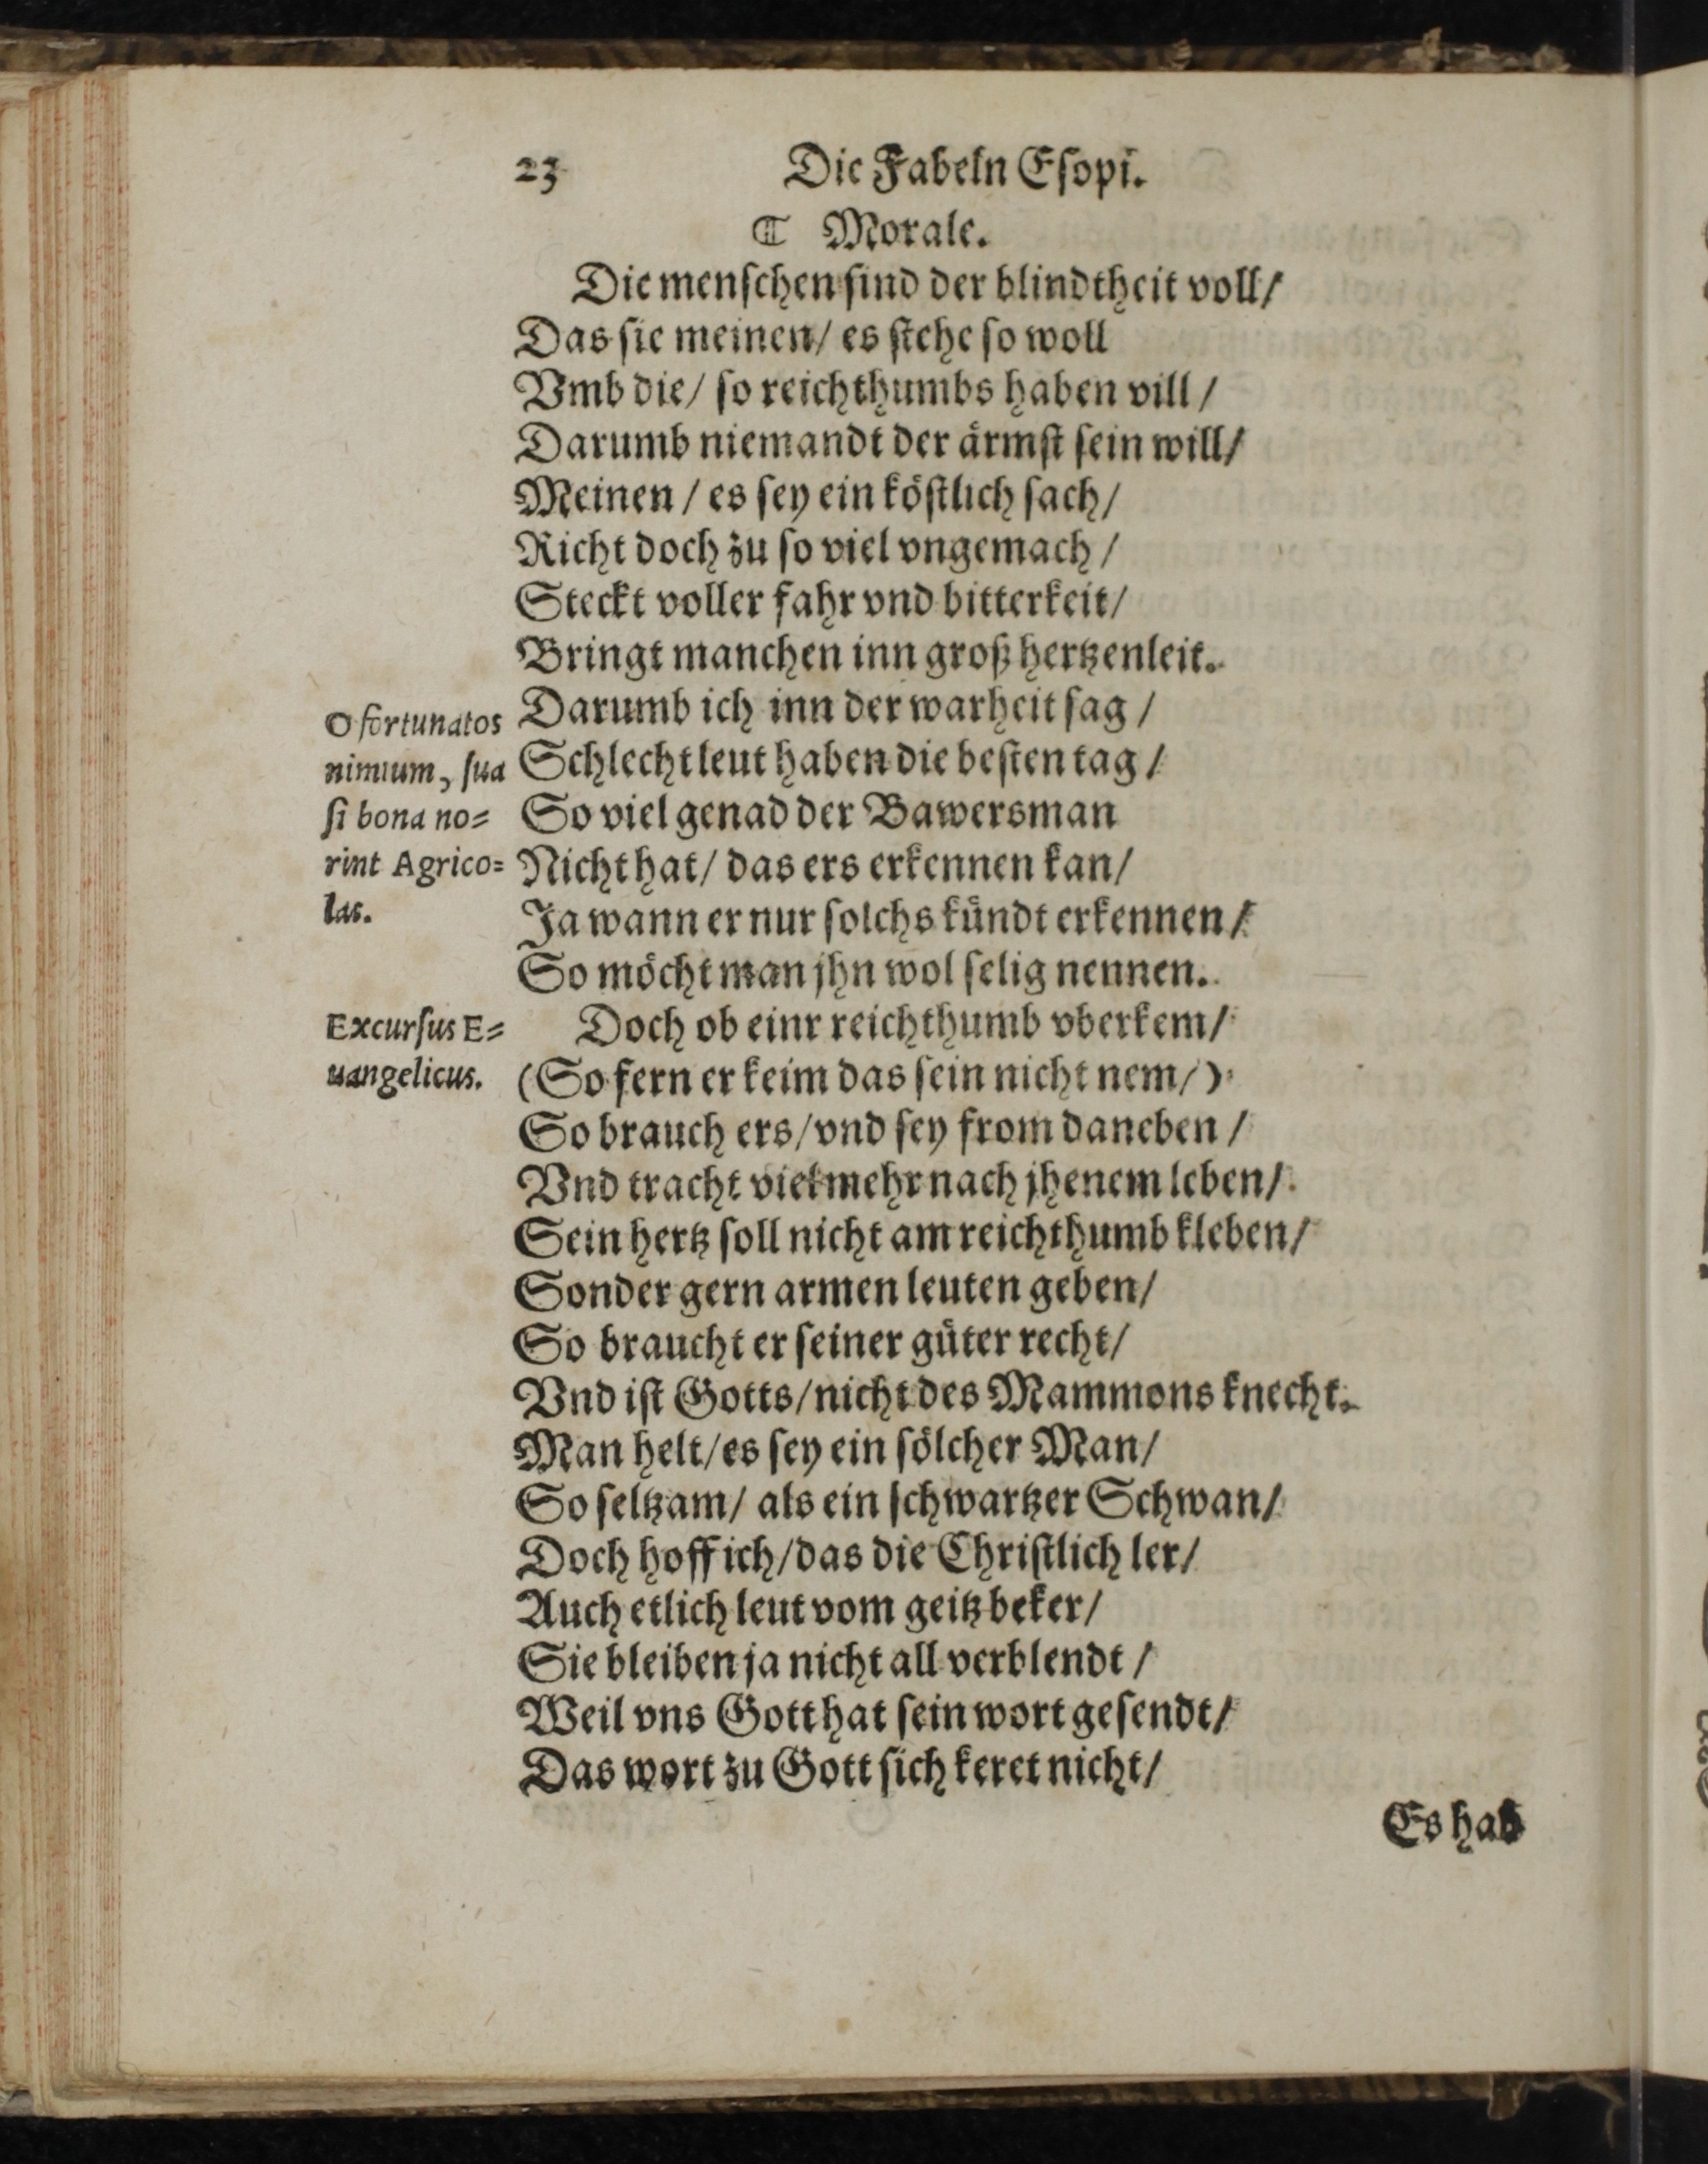 23 Die Fabeln Eſopi.
⸿ Morale.
Die menſchen ſind der blindtheit voll/
Das ſie meinen/ es ſtehe ſo woll
Vmb die/ ſo reichthumbs haben vill/
Darumb niemandt der aͤrmſt ſein will/
Meinen/ es ſey ein koͤſtlich ſach/
Richt doch zu ſo viel vngemach/
Steckt voller fahr vnd bitterkeit/
Bringt manchen inn groß hertzenleit.
Darumb ich inn der warheit ſag/
Schlecht leut haben die beſten tag/
So viel genad der Bawersman
Nicht hat/ das ers erkennen kan/
Ja wann er nur ſolchs kuͤndt erkennen/
So moͤcht man jhn wol ſelig nennen.
O fortunatos
nimium, ſua
ſi bona no=
rint Agrico=
las.
Doch ob einr reichthumb vberkem/
(So fern er keim das ſein nicht nem/)
So brauch ers/ vnd ſey from daneben/
Vnd tracht viel mehr nach jhenem leben/
Sein hertz ſoll nicht am reichthumb kleben/
Sonder gern armen leuten geben/
So braucht er ſeiner guͤter recht/
Vnd iſt Gotts/ nicht des Mammons knecht.
Man helt/ es ſey ein ſoͤlcher Man/
So ſeltzam/ als ein ſchwartzer Schwan/
Doch hoff ich/ das die Chriſtlich ler/
Auch etlich leut vom geitz beker/
Sie bleiben ja nicht all verblendt/
Weil vns Gott hat ſein wort geſendt/
Das wort zu Gott ſich keret nicht/
Excurſus E=
uangelicus.
Es hab